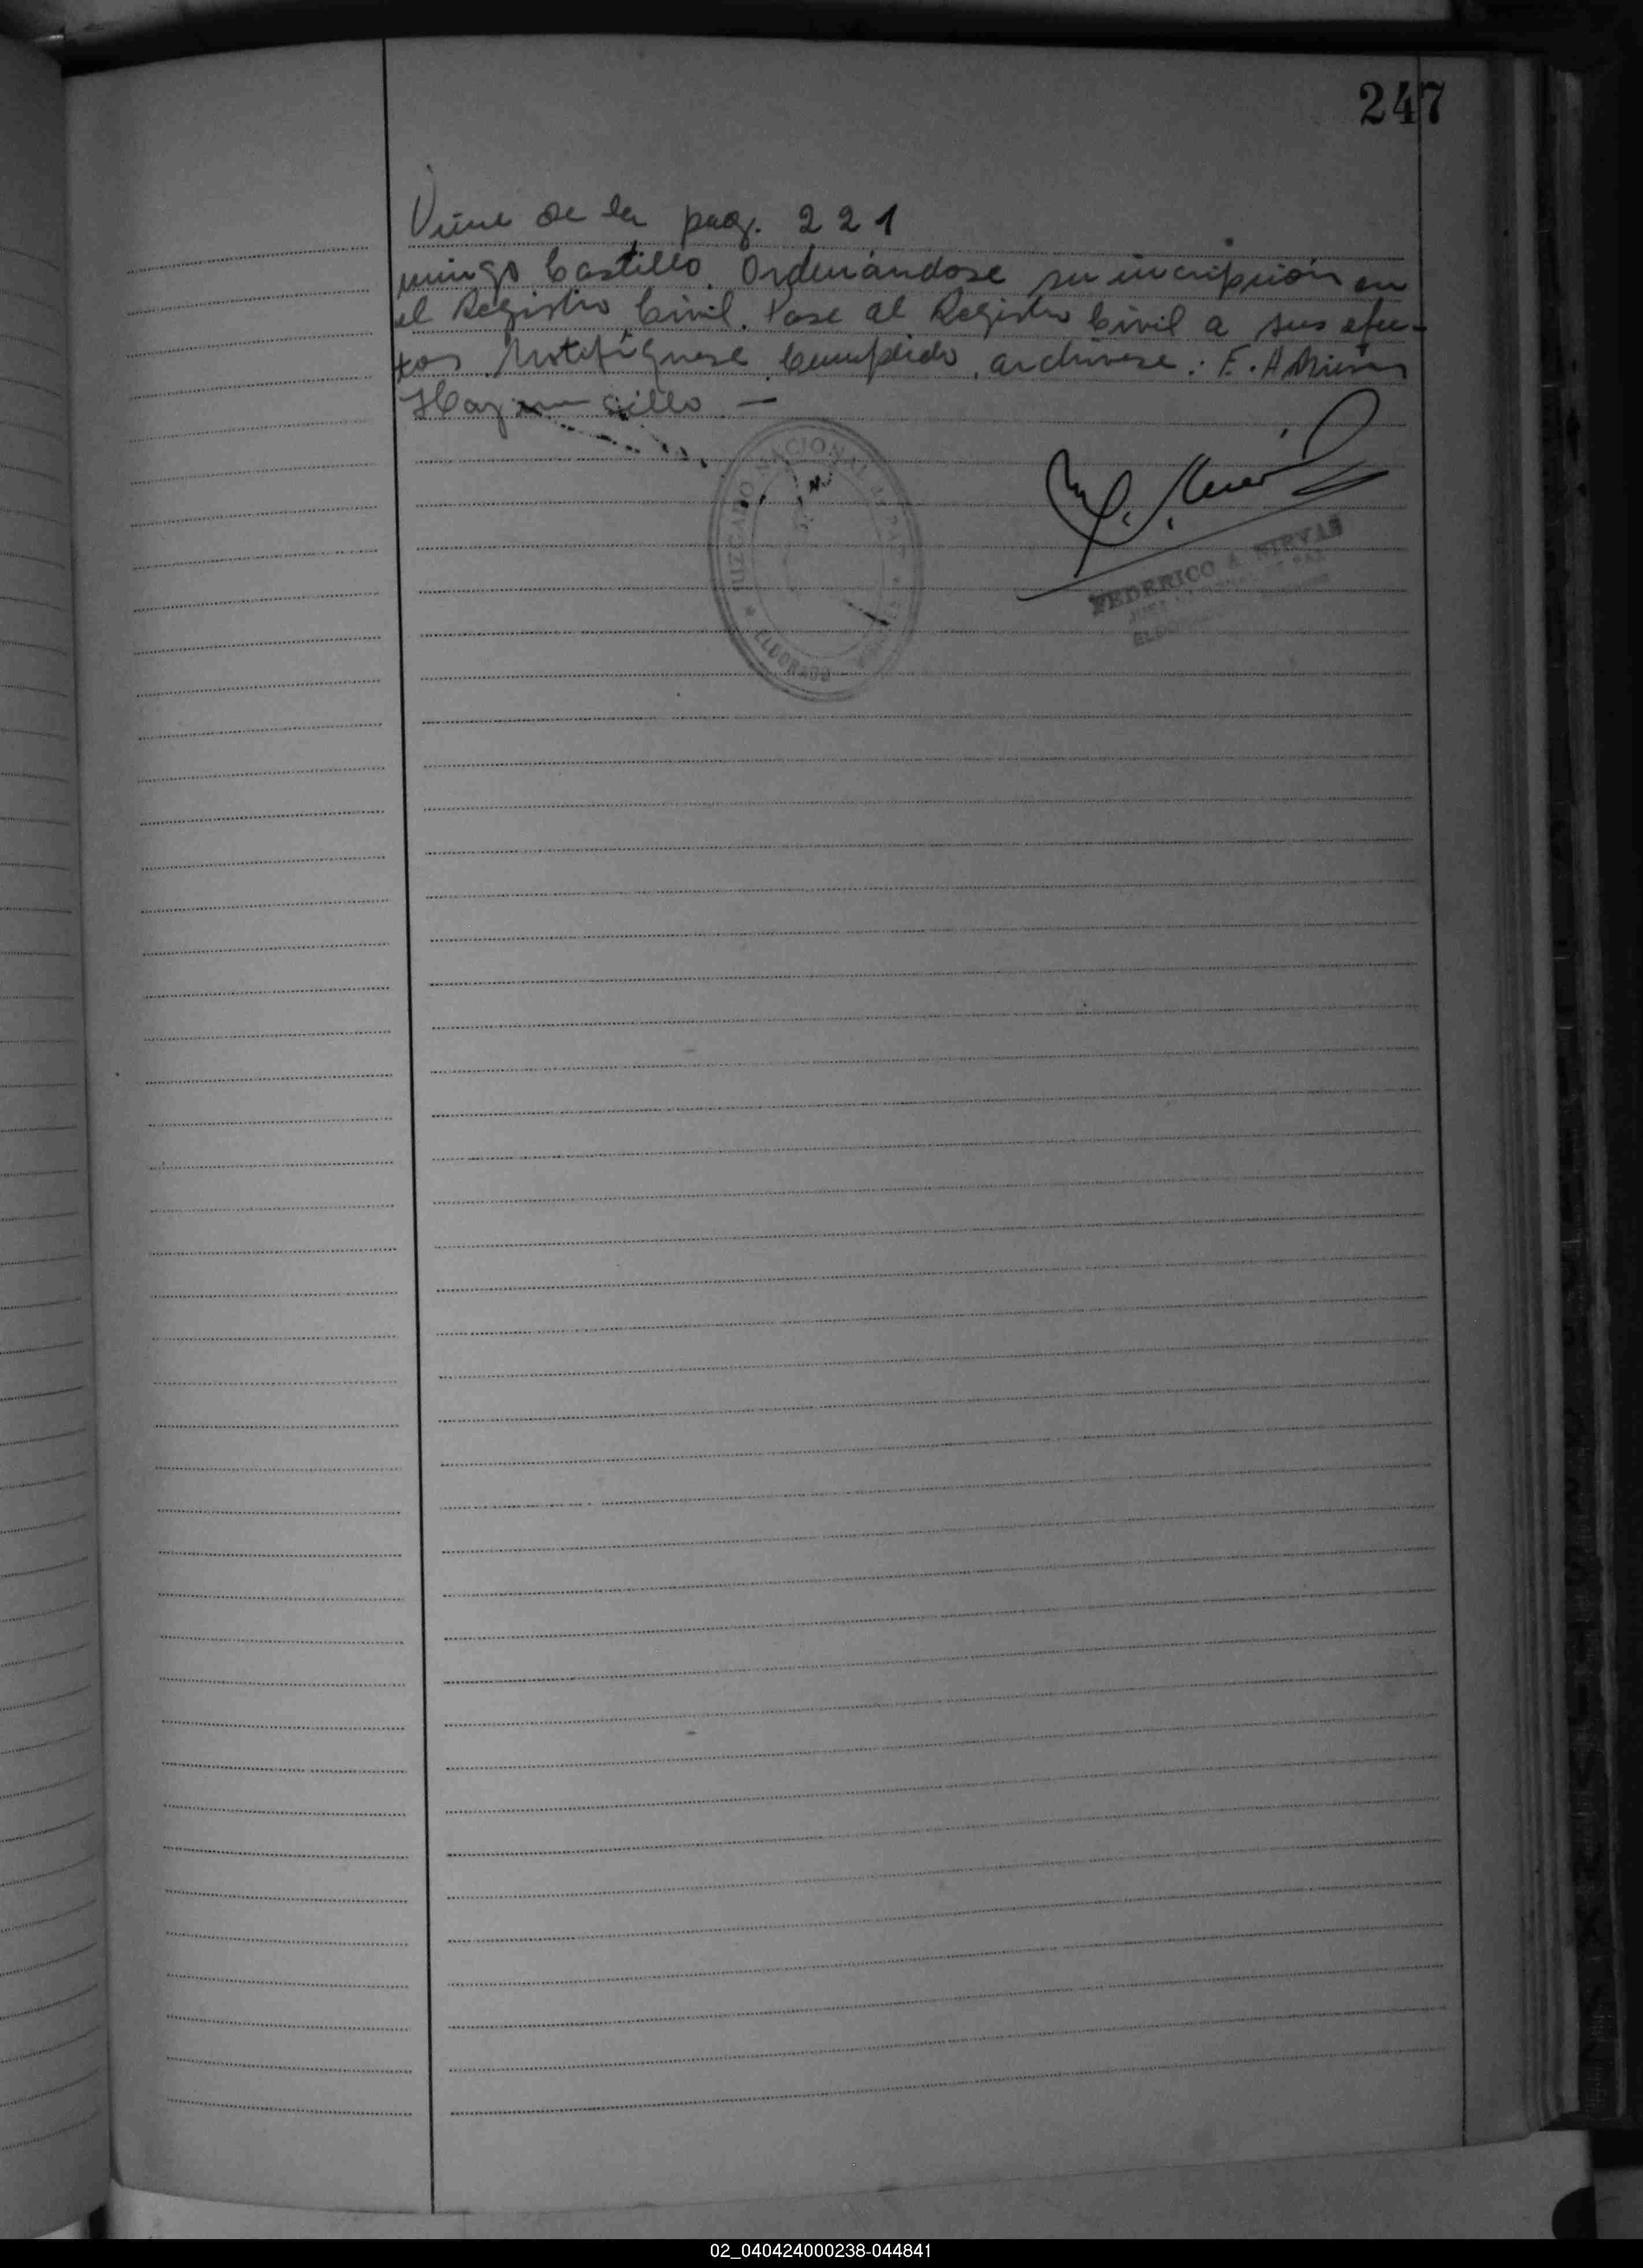 247
Viene de la pag. 221
mingo Castillo. Ordenándose su incripción en
el Registro Civil. Pase al Registro Civil a sus efec-
tos. Notifíquese. Cumplido, archívese.: F. A Nirvas
Hay un sello —
JUZGADO NACIONAL DE PAZ
ELDORADO
FEDERICO A. NIRVAS
02_040424000238-044841